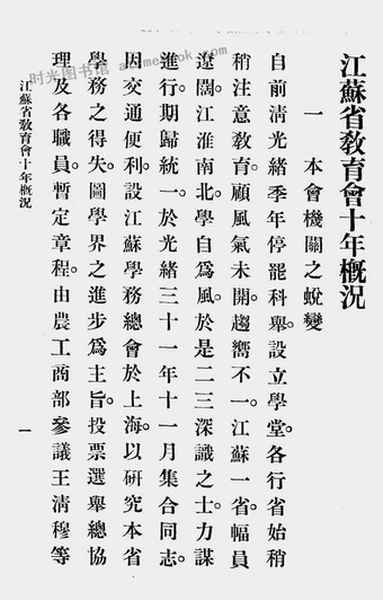 江蘇省敎育會十年槪況
一　本會機關之蛻變
自前淸光緖季年停罷科舉。設立學堂。各行省始稍
稍注意敎育。顧風氣未開。趨嚮不一。江蘇一省。幅員
遼闊。江淮南北。學自爲風。於是二三深識之士。力謀
進行。期歸統一。於光緖三十一年十一月集合同志。
因交通便利。設江蘇學務總會於上海。以硏究本省
學務之得失。圖學界之進步爲主旨。投票選舉總協
理及各職員。暫定章程。由農工商部參議王淸穆等
江蘇省敎育會十年槪況
一
时光图书馆